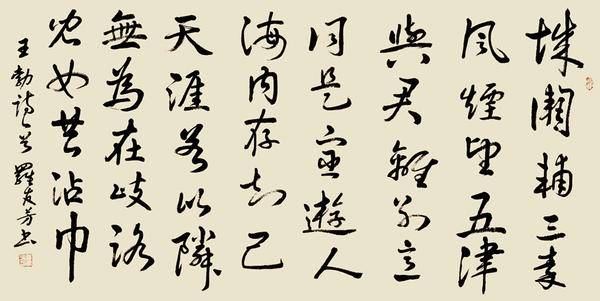 城闕輔三秦
風煙望五津
與君離別意
同是宦遊人
海内存知己
天涯若比隣
無為在歧路
兒女共沾巾
王勃詩一首 羅友芳書